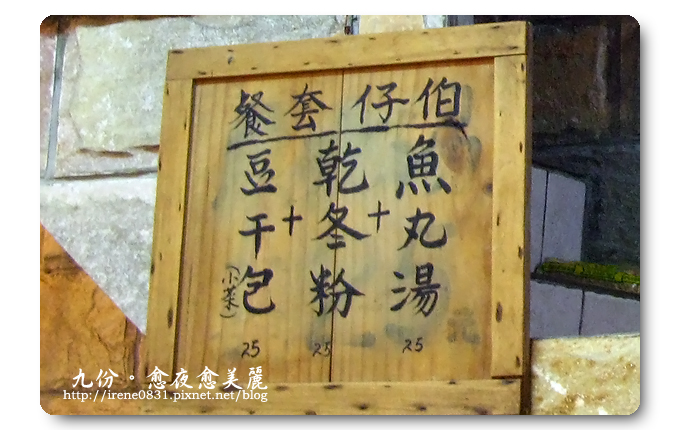 伯仔套餐
魚丸湯
25
+
乾冬粉
25
+
豆干包
(小菜)
25
九份。愈夜愈美麗
http://irene0831.pixnet.net/blog